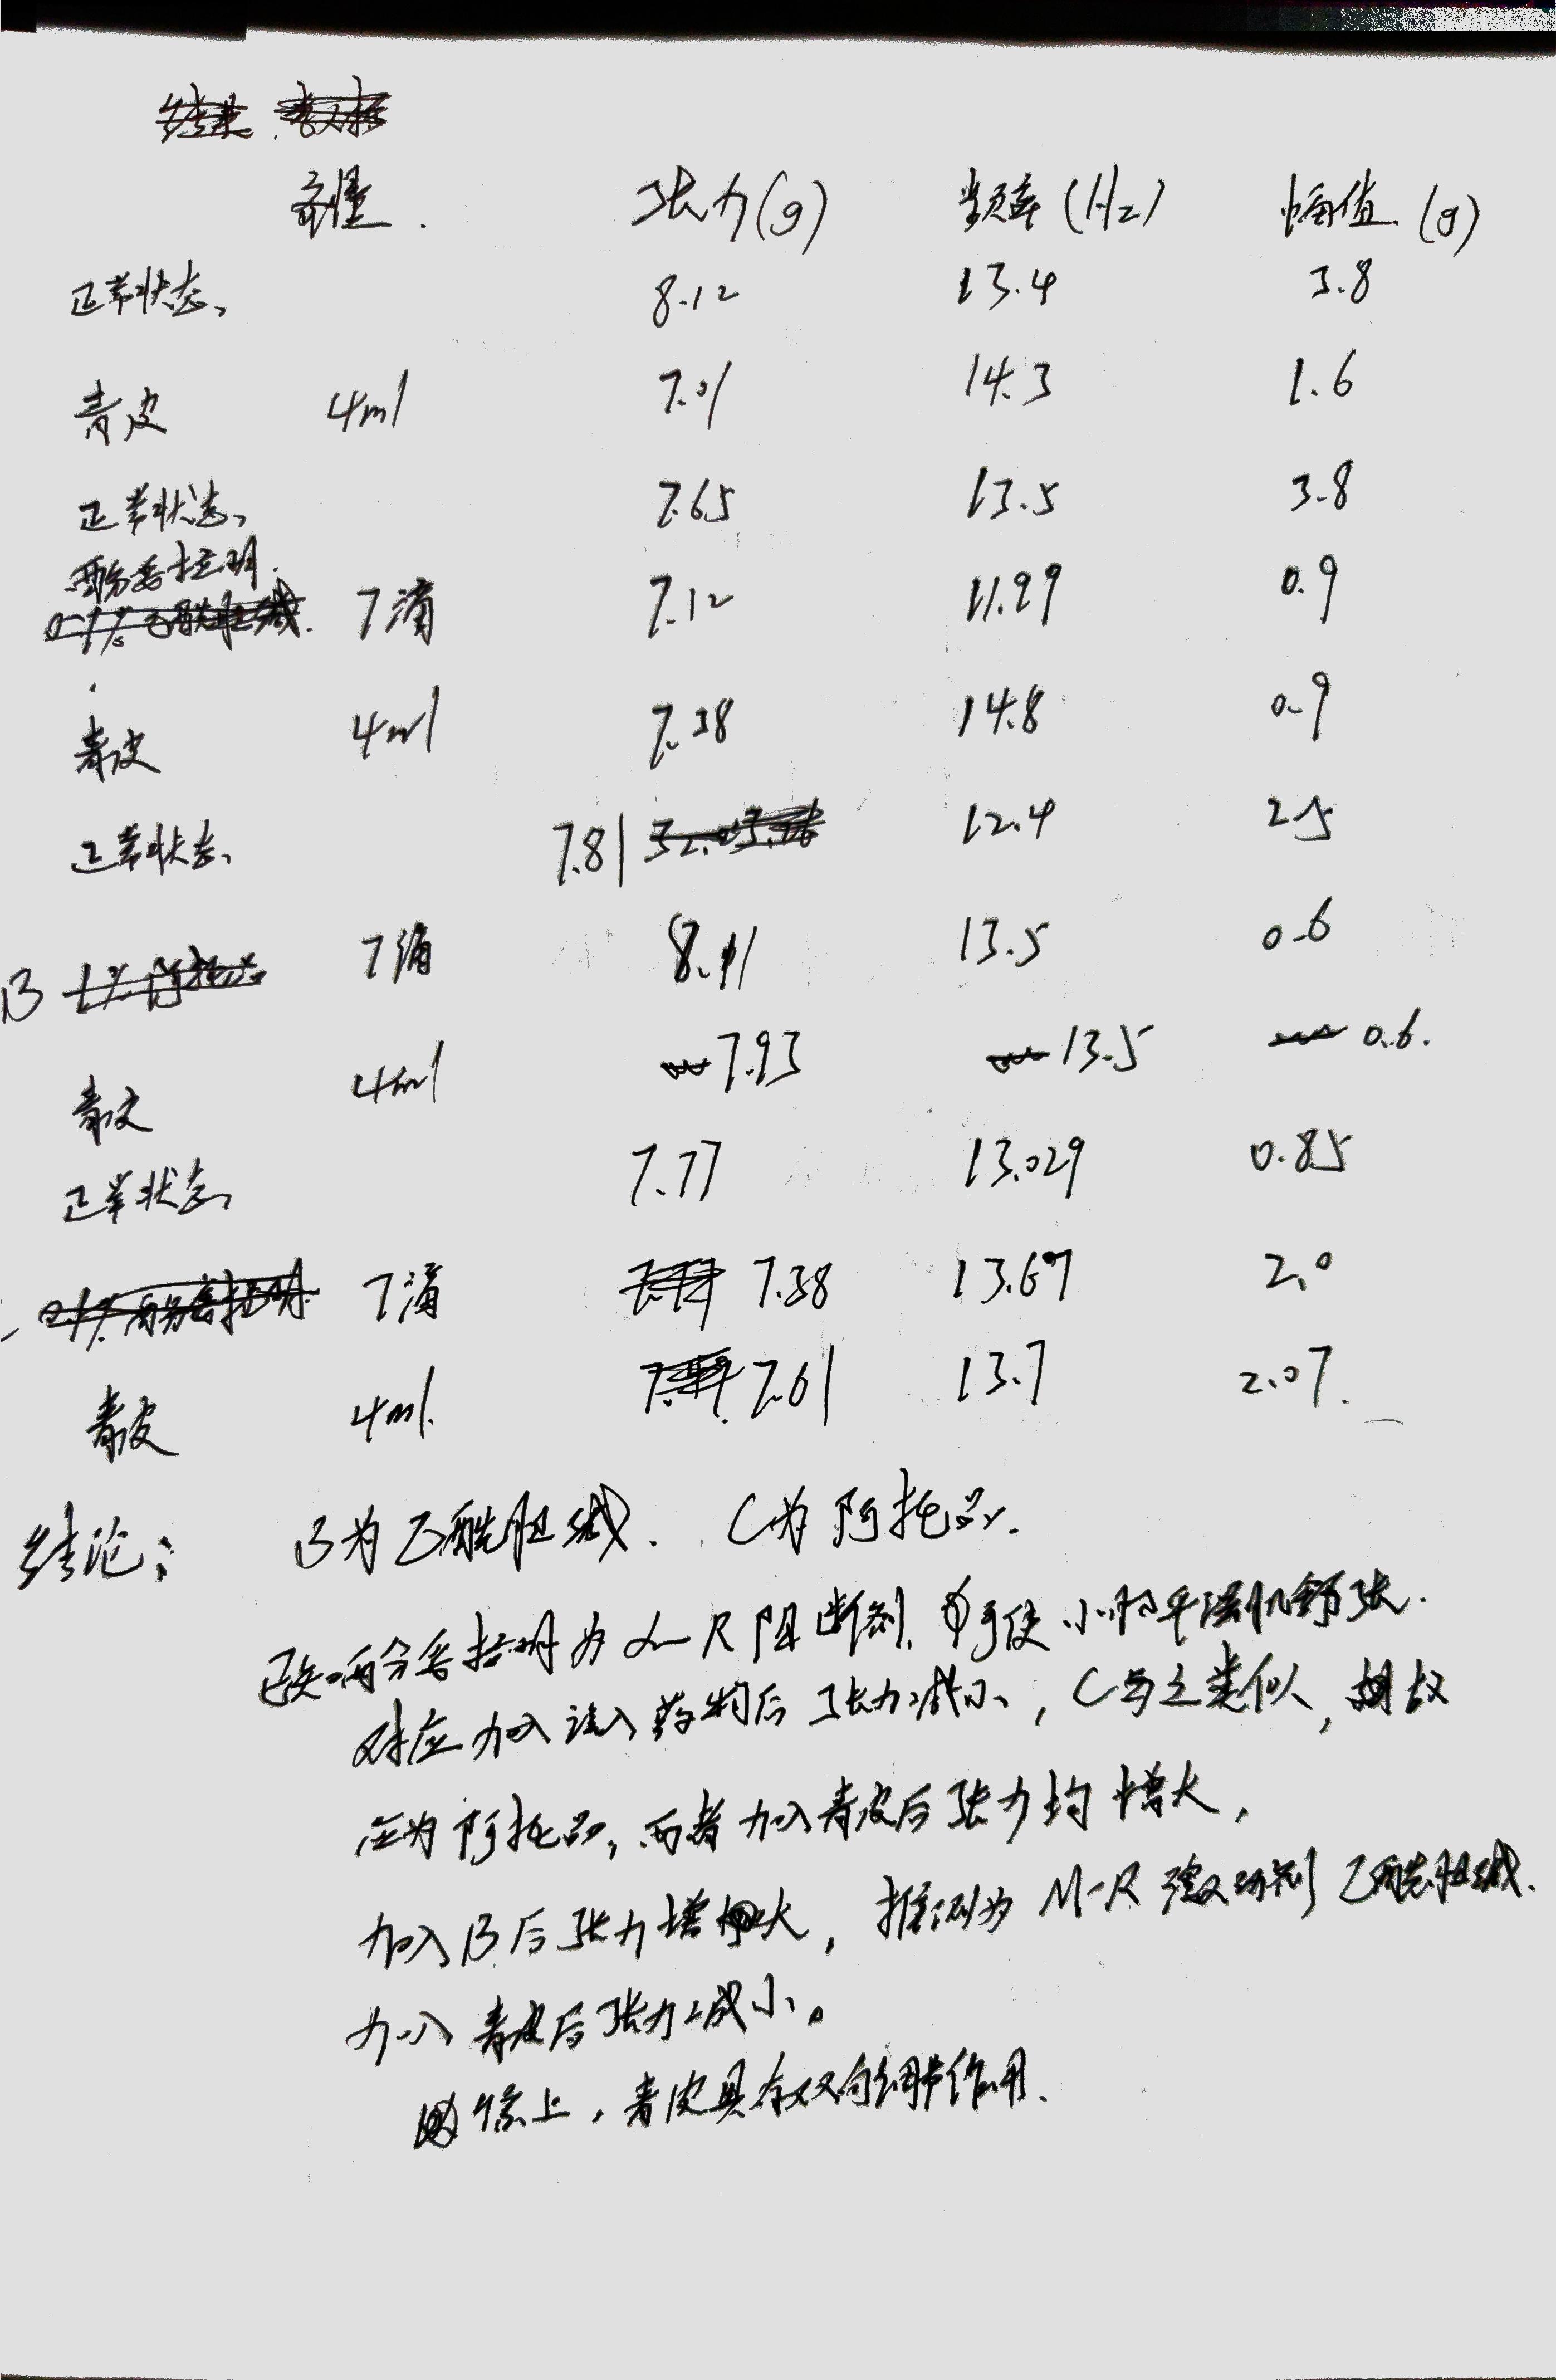 剂量. 张力(g) 频率(Hz) 幅值.(g)
正常状态 8.12 13.4 3.8
青皮 4ml 7.01 14.3 1.6
正常状态 7.65 13.5 3.8
酚妥拉明.
0.1%乙酰胆碱. 7滴 7.12 11.99 0.9
青皮 4ml 7.38 14.8 0.9
正常状态 7.81 12.4 2.5
B 1%阿托品 7滴 8.11 13.5 0.6
青皮 4ml 7.93 13.5 0.6.
正常状态 7.77 13.029 0.85
0.1%酚妥拉明. 7滴 7.38 13.67 2.0
青皮 4ml. 7.61 13.7 2.07.
结论: B为乙酰胆碱. C为阿托品.
已知酚妥拉明为α-R阻断剂,可使小肠平滑肌舒张.
对应加入该药物后张力减小,C与之类似,故
应为阿托品,两者加入青皮后张力均增大,
加入B后张力增大,推测为M-R激动剂乙酰胆碱.
加入青皮后张力减小。
综上,青皮具有双向调节作用.